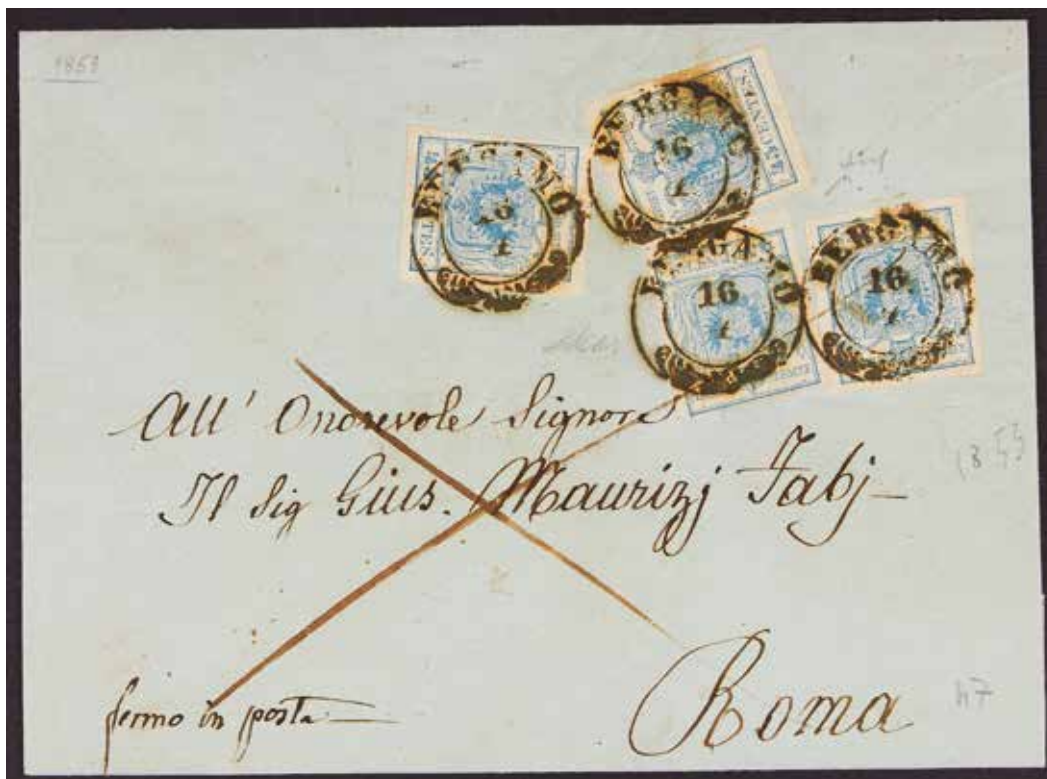 45 CENTES.
BERGAMO
16
1
BERGAMO
16
1
BERGAMO
16
1
BERGAMO
16
1
All' Onorevole Signore
Il Sig Gius. Maurizj Fabj
fermo in posta
Roma
47